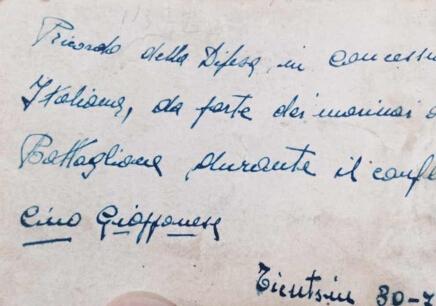 Ricordo della Difesa in concessi
Italiana, da parte dei marinai d
Battaglione durante il confl
Cino Giapponese
Tientsin 30-7